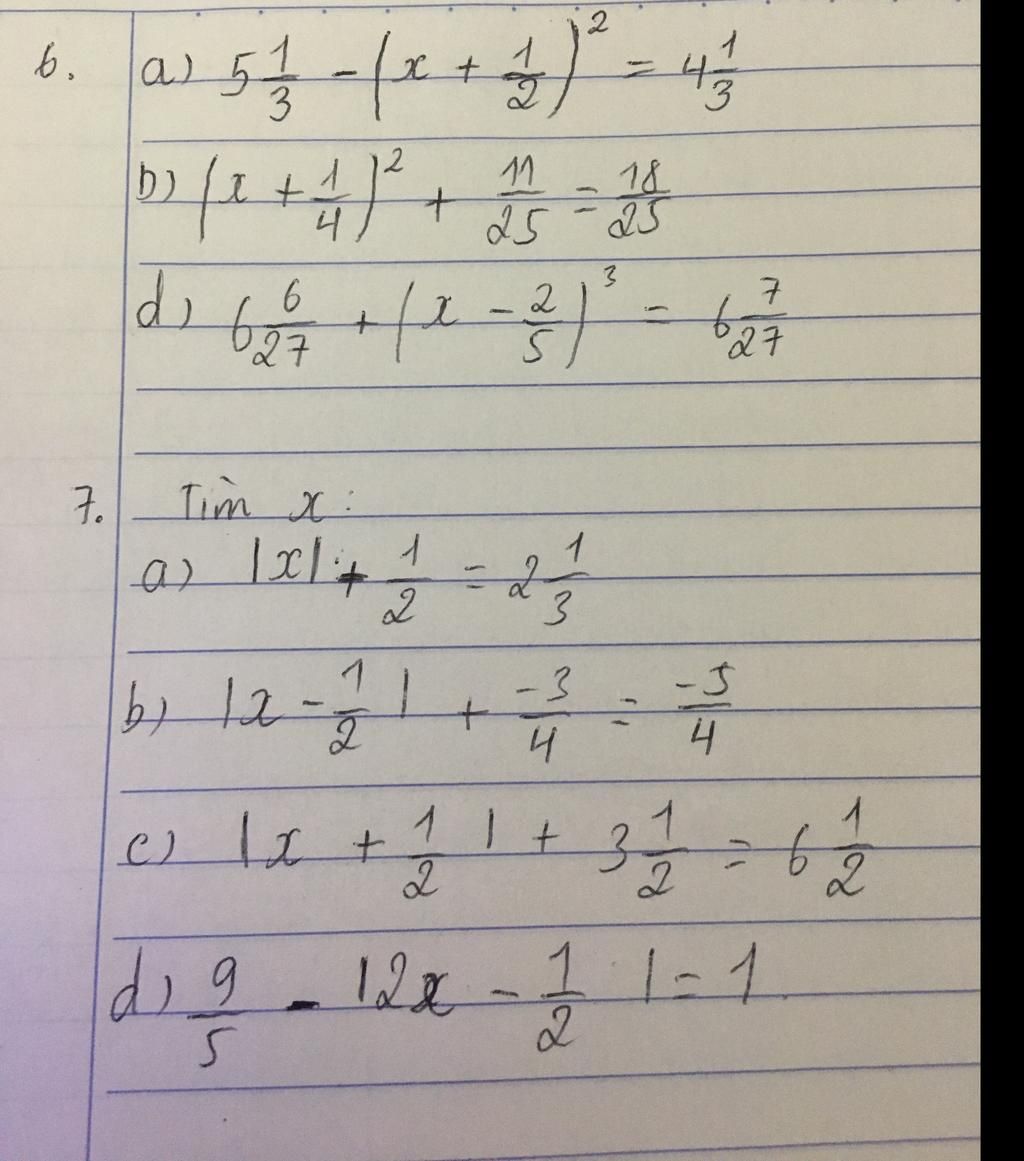 6. a) 5 1/3 - (x + 1/2)² = 4 1/3
b) (x + 1/4)² + 11/25 = 18/25
d) 6 6/27 + (x - 2/5)³ = 6 7/27
7. Tìm x:
a) |x| + 1/2 = 2 1/3
b) |x - 1/2| + -3/4 = -5/4
c) |x + 1/2| + 3 1/2 = 6 1/2
d) 9/5 - |2x - 1/2| = 1